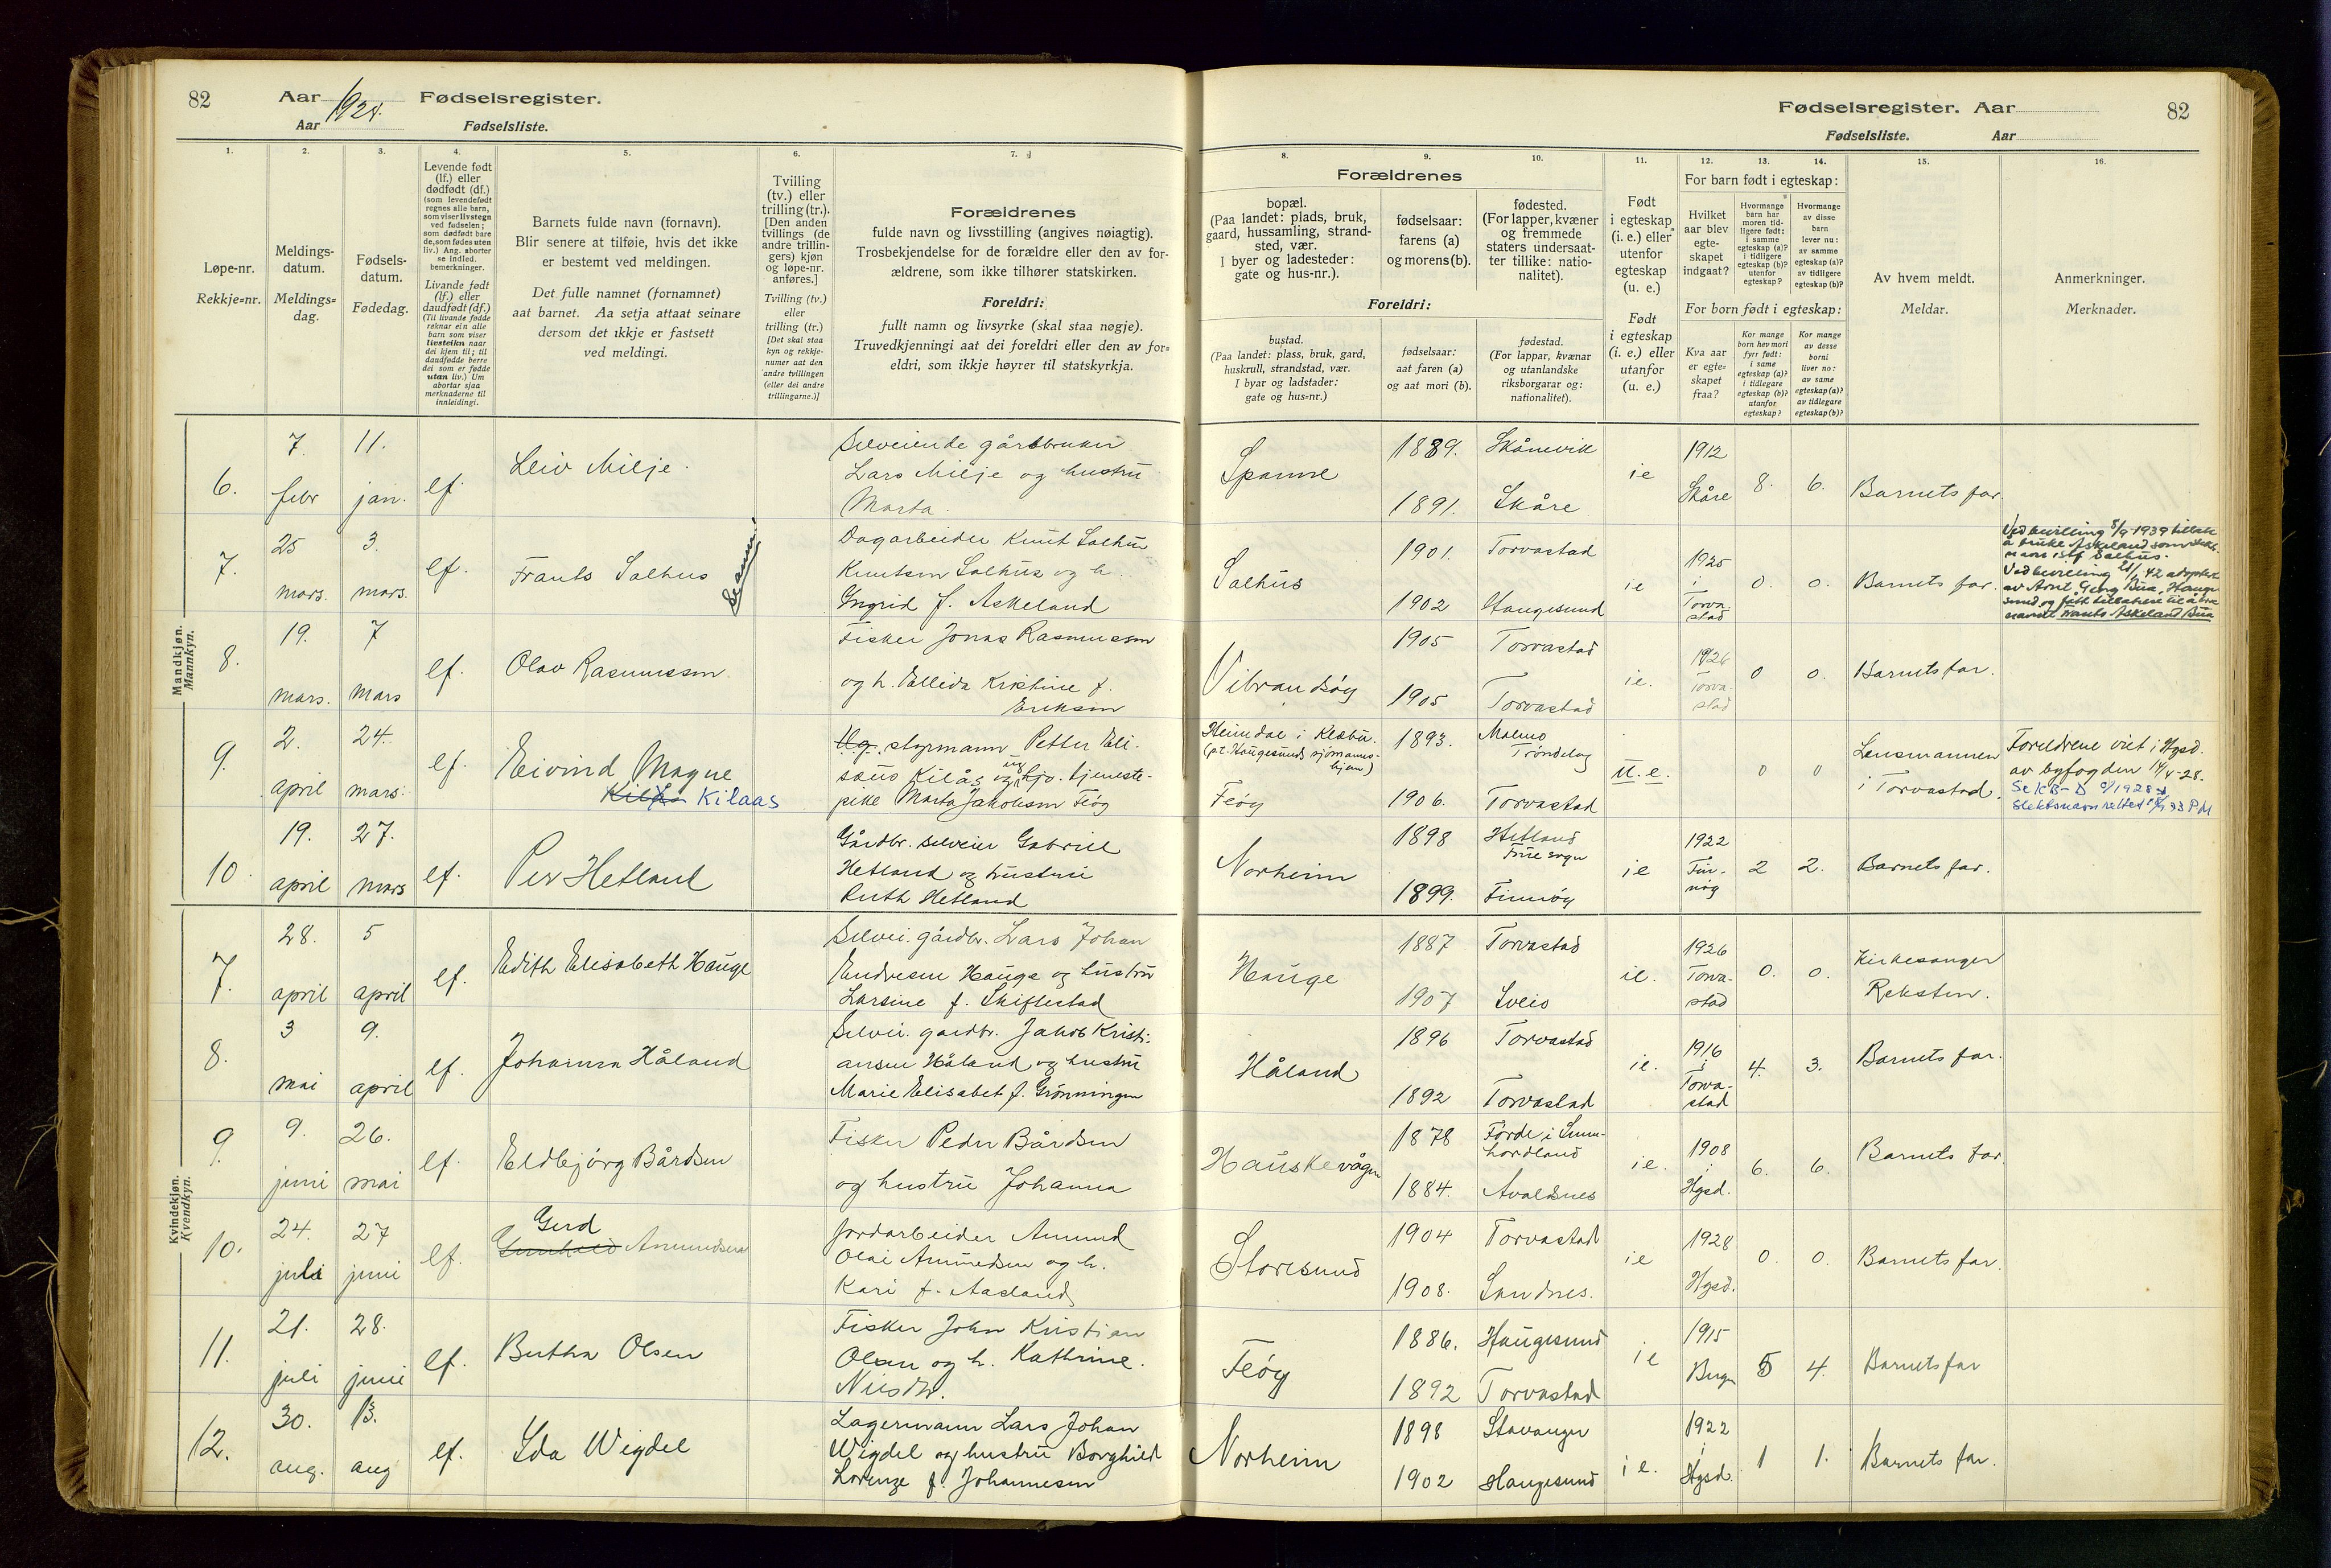 82 Aar 1928. Fødselsregister.
Aar Fødselsliste.
1. 2. 3. 4. 5. 6. 7.
Løpe-nr.
Rekkje=nr.
Meldings-
datum.
Meldings=
dag.
Fødsels-
datum.
Fødedag.
Levende født
(lf.) eller
dødfødt (df.)
(som levendefødt
regnes alle barn,
som viser livstegn
ved fødselen;
som dødfødt bare
de, som fødes uten
liv.) Ang. aborter
se indled.
bemerkninger.
Livande født
(lf.) eller
daudfødt (df.)
(Til livande fødde
reknar ein alle
barn som viser
livsteikn naar
dei kjem til; til
daudfødde berre
dei som er fødde
utan liv.) Um
abortar sjaa
merknaderne til
innleidingi.
Barnets fulde navn (fornavn).
Blir senere at tilføie, hvis det ikke
er bestemt ved meldingen.
Det fulle namnet (fornamnet)
aat barnet. Aa setja attaat seinare
dersom det ikkje er fastsett
ved meldingi.
Tvilling
(tv.) eller
trilling (tr.).
[Den anden
tvillings (de
andre trillin-
gers) kjøn
og løpe-nr.
anføres.]
Tvilling (tv.)
eller
trilling (tr.)
[Det skal staa
kyn og rekkje-
numer aat den
andre tvillingen
(eller dei andre
trillingarne.)]
Forældrenes
fulde navn og livsstilling (angives nøiagtig).
Trosbekjendelse for de forældre eller den av for-
ældrene, som ikke tilhører statskirken.
Foreldri:
fullt namn og livsyrke (skal staa nøgje).
Truvedkjenningi aat dei foreldri eller den av for=
eldri, som ikkje høyrer til statskyrkja.
Mandkjøn.
Mannkyn.
6.
7.
febr
11.
jan.
lf.
Leiv Milje.
Selveiende gårdbruker
Lars Milje og hustru
Marta.
7.
25
mars.
3.
mars.
lf.
Frants Salhus
Dagarbeider Knut Salhus
Knutsen Salhus og h.
Ingrid f. Askeland
8.
19.
mars.
7
mars
lf.
Olav Rasmussen
Fisker Jonas Rasmussen
og h. Ellida Kristine f.
Eriksen
9.
2.
april
24.
mars.
lf.
Eivind Magne
Kilaas
Ug. styrmann Petter Eli-
saus Kilås og hjv. tjeneste-
pike Marta Jakobsen Feøy
10.
19.
april
27.
mars
lf.
Per Hetland
Gårdbr. selveier Gabriel
Hetland og hustru
Ruth Hetland
Kvindekjøn.
Kvendkyn.
7.
28.
april
5
april
lf.
Edith Elisabeth Hauge
Selvei. gårdbr. Lars Johan
Endresen Hauge og hustru
Larsine f. Skiftestad
8.
3
mai
9.
april
lf.
Johanna Håland
Selvei. gardbr. Jakob Kristi-
ansen Håland og hustru
Marie Elisabet f. Grönningen
9.
9.
juni
26.
mai
lf.
Eldbjörg Bårdsen
Fisker Peder Bårdsen
og hustru Johanna
10.
24.
juli
27
juni
lf.
Gerd
Gunhild Amundsen
Jordarbeider Amund
Olai Amundsen og h.
Kari f. Aasland
11.
21.
juli
28.
juni
lf.
Bertha Olsen
Fisker John Kristian
Olsen og h. Kathrine
12.
30.
aug.
13.
aug
lf.
Ida Wigdel
Lagermann Lars Johan
Wigdel og hustru Borghild
Lorenze f. Johannesen
Fødselsregister. Aar 82
Fødselsliste. Aar
8. 9. 10. 11. 12. 13. 14. 15. 16.
Forældrenes
bopæl.
(Paa landet: plads, bruk,
gaard, hussamling, strand-
sted, vær.
I byer og ladesteder:
gate og hus-nr.).
fødselsaar:
farens (a)
og morens (b).
fødested.
(For lapper, kvæner
og fremmede
staters undersaat-
ter tillike: natio-
nalitet).
Foreldri:
bustad.
(Paa landet: plass, bruk, gard,
huskrull, strandstad, vær.
I byar og ladstader:
gate og hus=nr.)
fødselsaar:
aat faren (a)
og aat mori (b).
fødestad.
(For lappar, kvænar
og utanlandske
riksborgarar og:
nationalitet).
Født
i egteskap
(i. e.) eller
utenfor
egteskap
(u. e.)
Født
i egteskap
(i. e.) eller
utanfor
(u. e.)
For barn født i egteskap:
Hvilket
aar blev
egte-
skapet
indgaat?
Hvormange
barn har
moren tid-
ligere født:
i samme
egteskap (a)?
i tidligere
egteskap (b)?
utenfor
egteskap?
Hvormange
av disse
barn
lever nu:
av samme
egteskap (a)?
av tidligere
egteskap (b)?
For born født i egteskap:
Kva aar
er egte=
skapet
fraa?
Kor mange
born hev mori
fyrr født:
i same
egteskap (a)?
i tidlegare
egteskap (b)?
utanfor
egteskap?
Kor mange
av desse
borni
liver no:
av same
egteskap (a)?
av tidlegare
egteskap (b)?
Av hvem meldt.
Meldar.
Anmerkninger.
Merknader.
Spanne
1889.
1891.
Skånevik
Skåre
ie
1912
Skåre
8. 6. Barnets far.
Salhus
1901.
1902
Torvastad
Haugesund
ie
1925
i
Torva-
stad
0. 0. Barnets far.
Ved bevilling 5/9-1939 tillatt
å bruke Askeland som slekts-
navn istf Salhus.
Ved bevilling 21/1-42 adoptert
Vibrandsöy
1905
1905
Torvastad
Torvastad
ie.
1926
Torva-
stad
0 0. Barnets far.
Heimdal i Klæbu.
(pt. Haugesunds sjömanns-
hjem)
Feöy
1893.
1906.
Malmo
Tröndelag
Torvastad
u. e.
0 0
Lensmannen
i Torvastad.
Foreldrene viet i Hgsd.
av byfogden 14/4-28.
Norheim
1898
1899.
Hetland
Finnöy
ie
1922
Fin-
nöy
2 2. Barnets far.
Hauge
1887
1907
Torvastad
Sveio
ie.
1926
Torva-
stad
0. 0.
Kirkesanger
Reksten.
Håland
1896
1892
Torvastad
Torvastad
ie.
1916
i
Torva-
stad
4. 3. Barnets far.
Hauskevågen
1878
1884.
Förde i Sunn-
hordland
Avaldsnes
ie.
1908
i
Hgsd.
6. 6. Barnets far.
Storesund
1904
1908.
Torvastad
Sandnes.
ie
1928
Hgsd.
0. 0. Barnets far.
Feöy
1886.
1892
Haugesund
Torvastad
ie
1915
Bergen
5 4. Barnets far
Norheim
1898
1902
Stavanger
Haugesund
ie.
1922
i
Hgsd.
1 1. Barnets far.